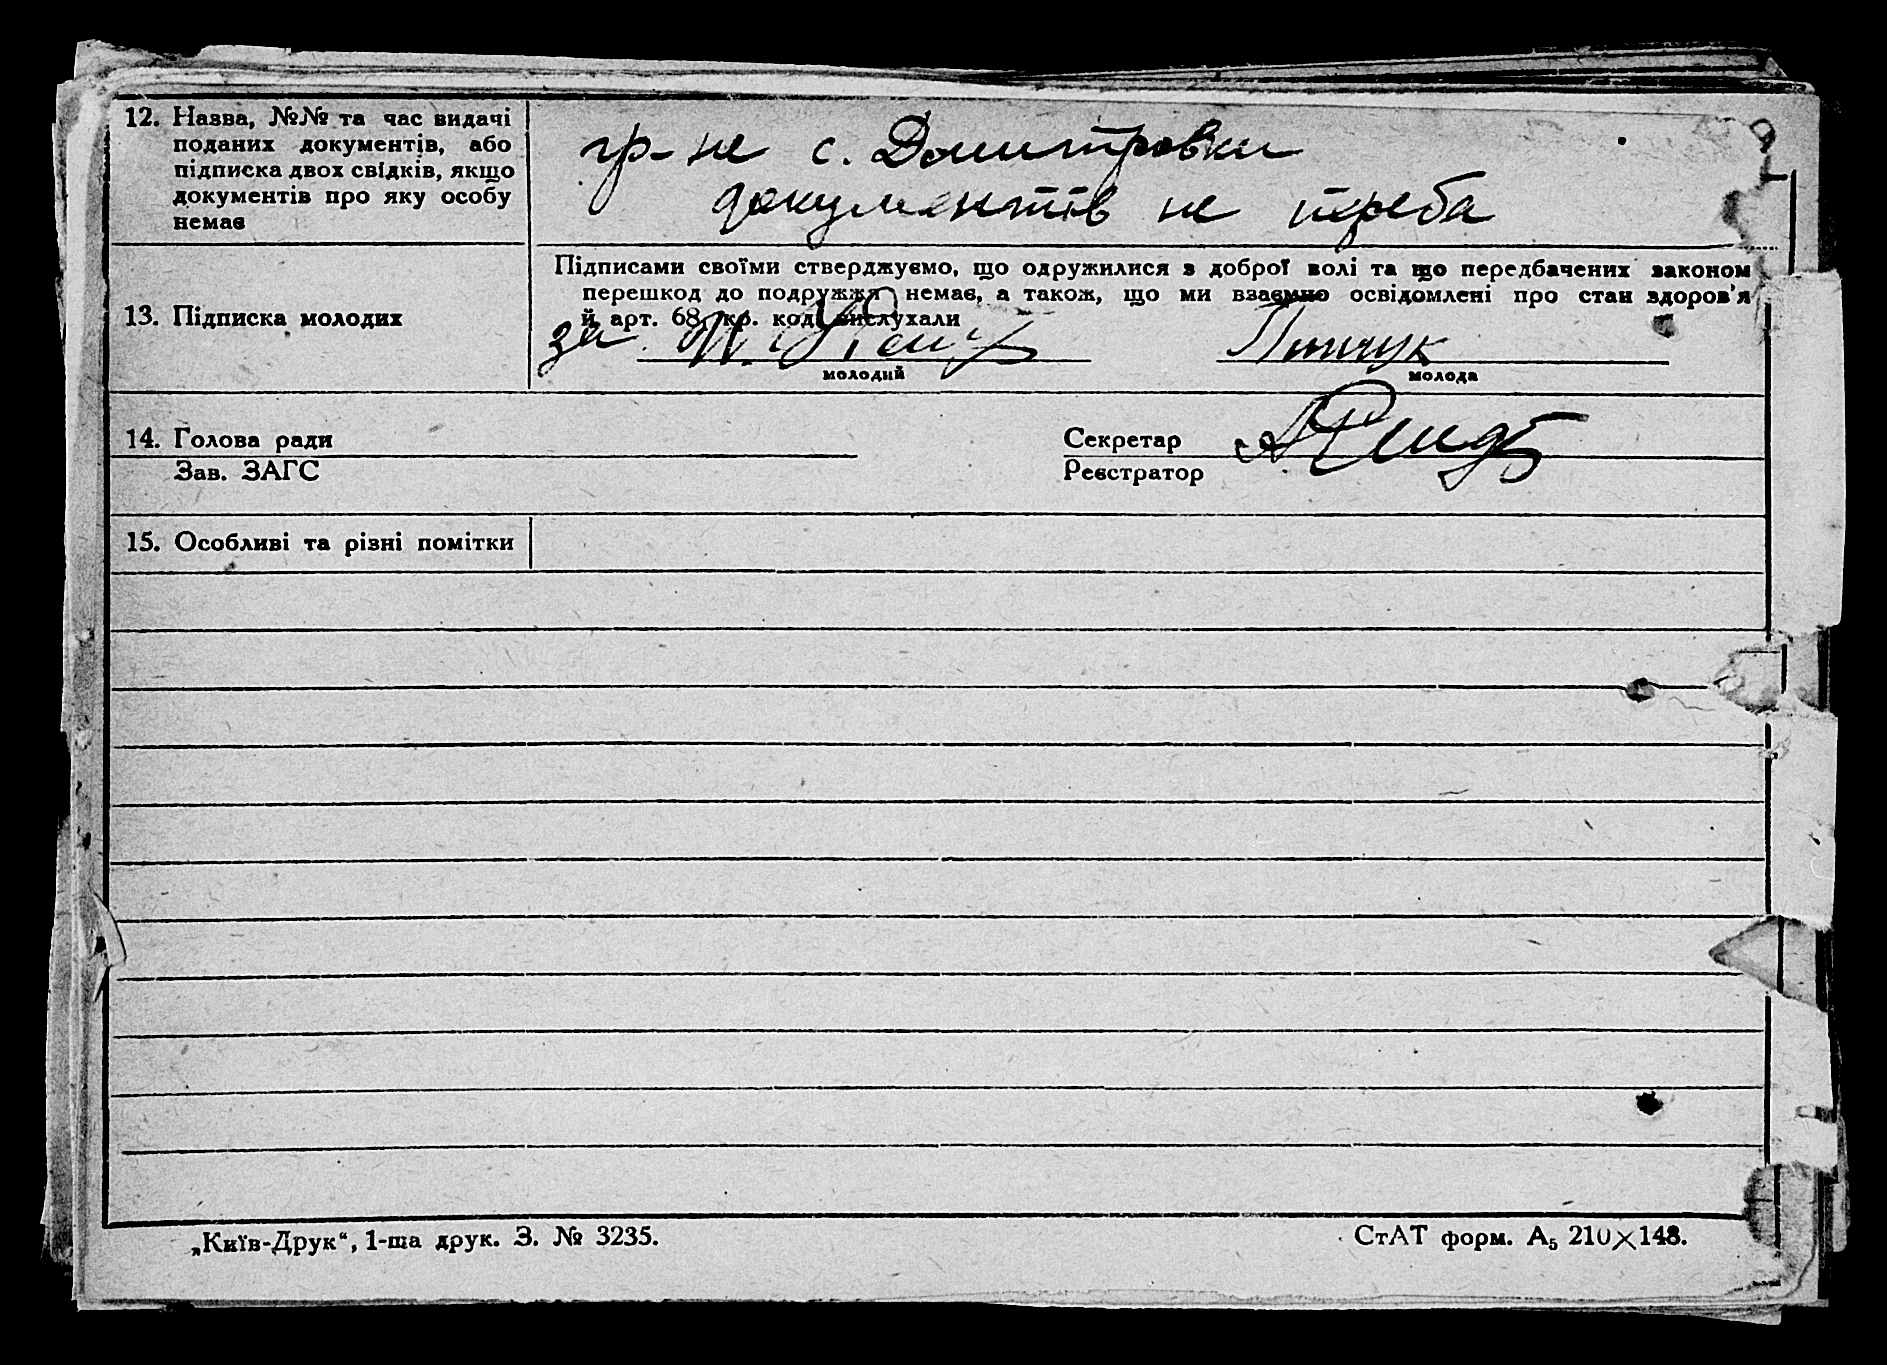 12. Назва, №№ та час видачі
поданих документів, або
підписка двох свідків, якщо
документів про яку особу
немає
гр-не с. Дмитровки
документів не треба
Підписами своїми стверджуємо, що одружилися з доброї волі та що передбачених законом
перешкод до подружжя немає, а також, що ми взаємно освідомлені про стан здоров'я
й арт. 68, кр. код. вислухали
13. Підписка молодих
за
молодий
молода
14. Голова ради
Секретар
Зав. ЗАГС
Реєстратор
15. Особливі та різні помітки
„Київ-Друк“, 1-ша друк. З. № 3235.
СтАТ форм. А₅ 210×148.